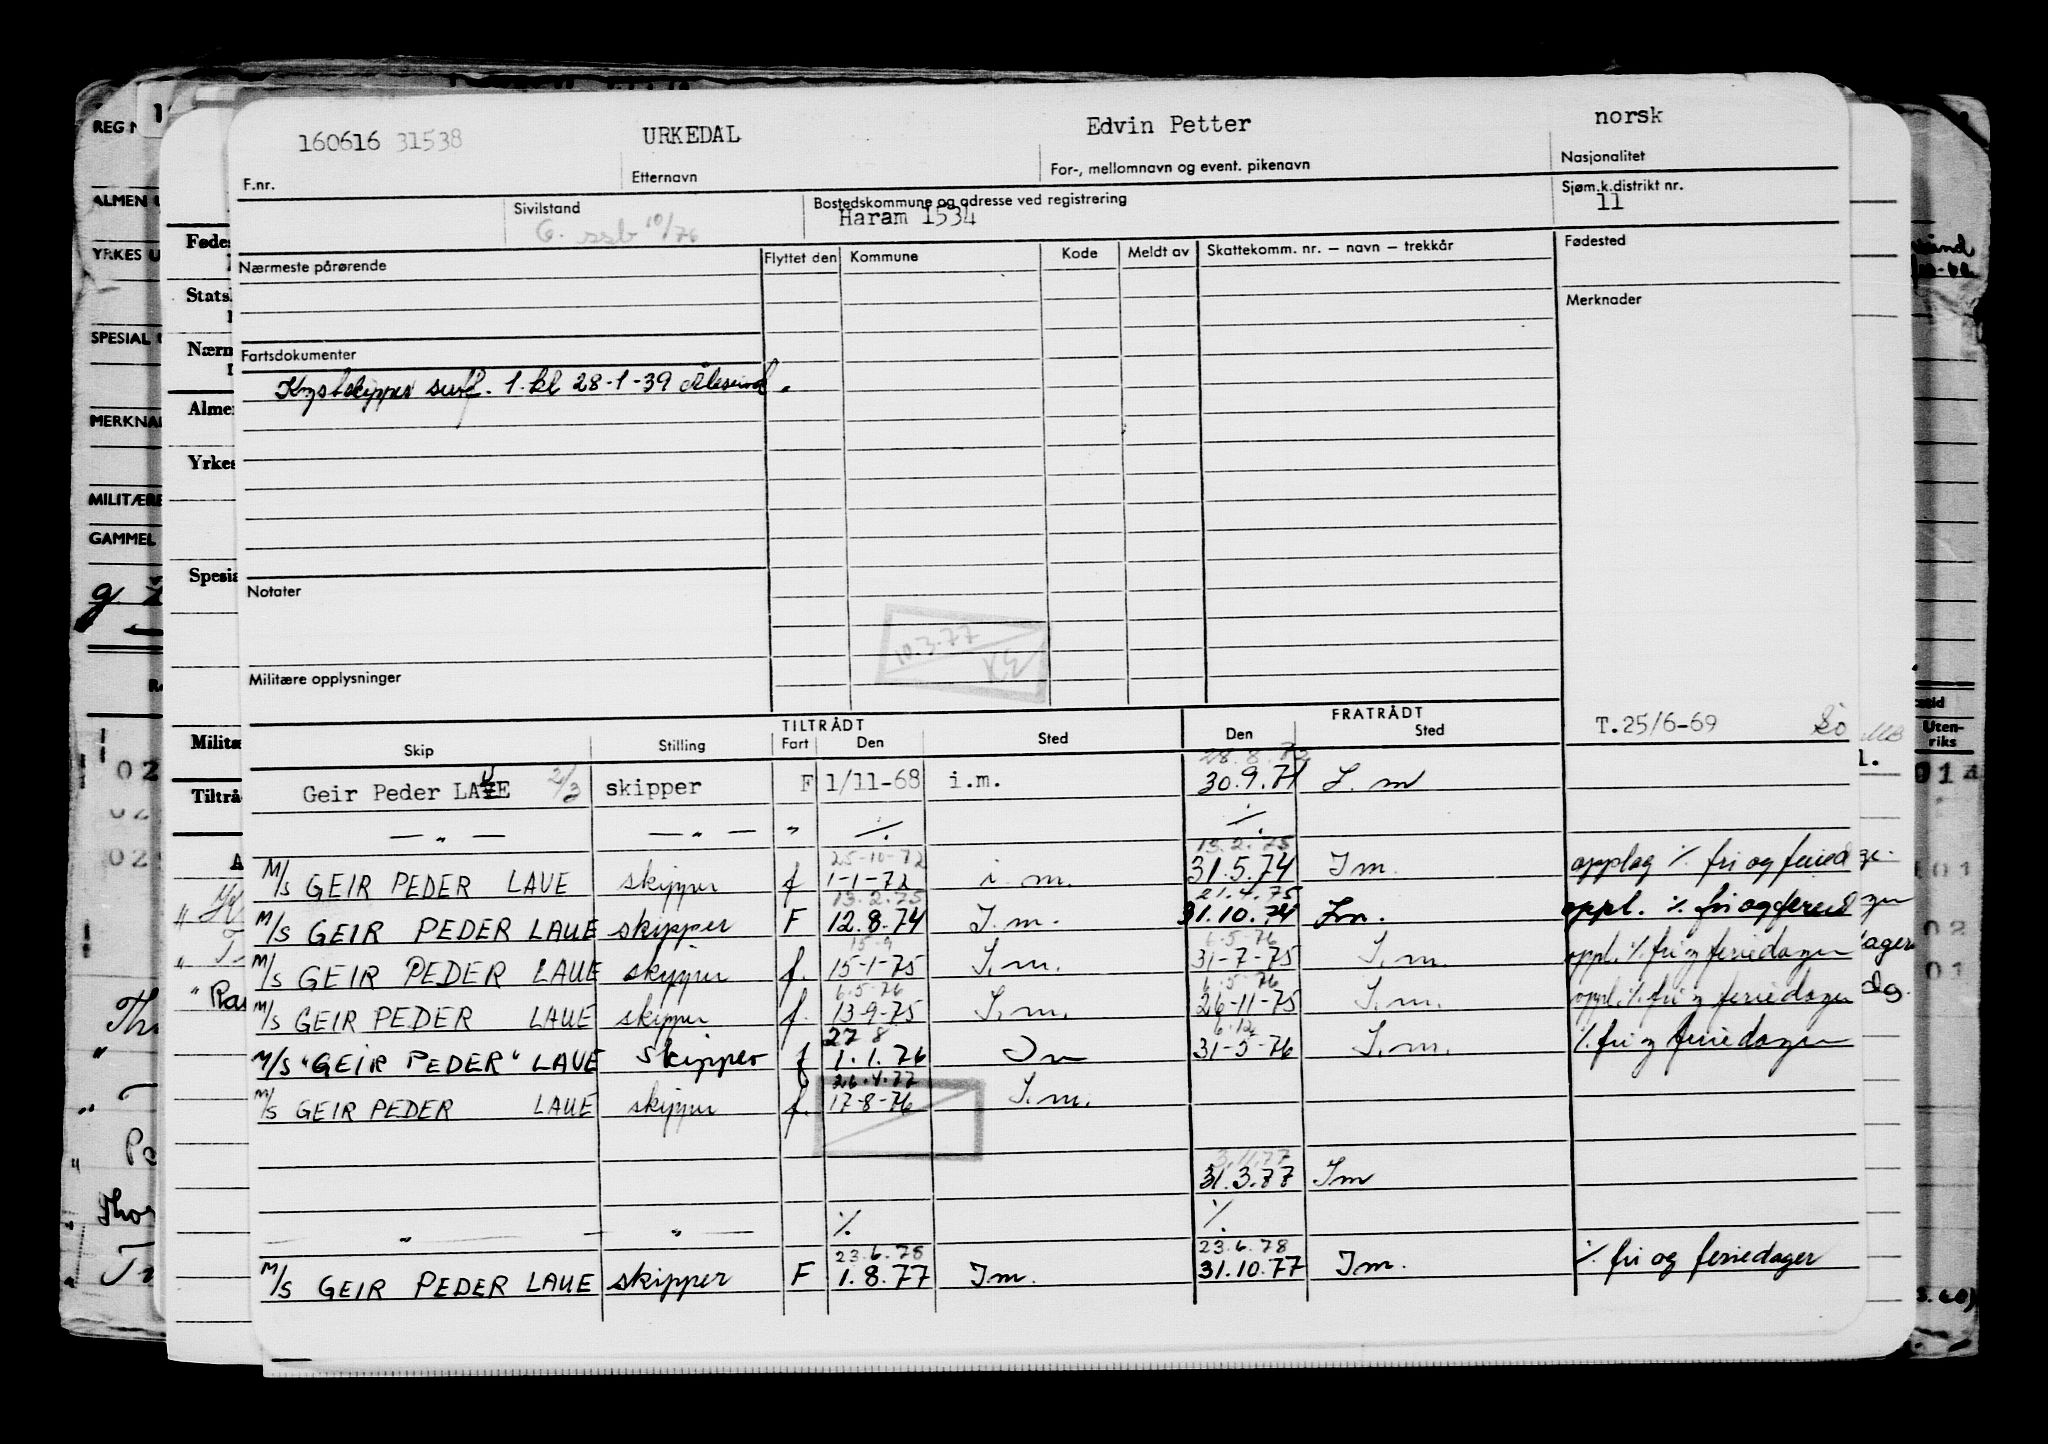 160616 31538 URKEDAL Edvin Petter norsk
F.nr. Etternavn For-, mellomnavn og event. pikenavn Nasjonalitet
Sivilstand Bostedskommune og adresse ved registrering Sjøm.k.distrikt nr.
G. ssb 10/76 Haram 1534 11
Nærmeste pårørende Flyttet den Kommune Kode Meldt av Skattekomm. nr. – navn – trekkår Fødested
Merknader
Fartsdokumenter
Kystskipper sert. 1. kl 28-1-39 Ålesund.
Notater
10.3.77
Militære opplysninger
TILTRÅDT FRATRÅDT
Skip Stilling Fart Den Sted Den Sted T.25/6-69
28.8.72
Geir Peder LAUE 2/3 skipper F 1/11-68 i.m. 30.9.71 I.m
— " — — " — " ./. ./.
25-10-72 13.2.75
M/S GEIR PEDER LAUE skipper f 1-1-72 i.m. 31.5.74 Im. opplag ./. fri og feried
13.2.75 21.4.75
M/S GEIR PEDER LAUE skipper F 12.8.74 I.m. 31.10.74 Im. oppl. ./. fri og feried
15-9 6-5-76
M/S GEIR PEDER LAUE skipper f. 15-1-75 I.m. 31-7-75 I.m. oppl. ./. fri og feriedager
6-5-76 6-5-76
M/S GEIR PEDER LAUE skipper f. 13-9-75 I.m. 26-11-75 I.m. oppl. ./. fri og feriedager
27 8 6.12
M/S "GEIR PEDER" LAUE Skipper f 1.1.76 Im 31-5-76 I.m. ./. fri og feriedager
26.4.77
M/S GEIR PEDER LAUE skipper f. 17-8-76 I.m.
3.11.77
31.3.77 Im
— " — — " — ./. ./.
23.6.78 23.6.78
M/S GEIR PEDER LAUE skipper F 1.8.77 Im. 31.10.77 Im. ./. fri og feriedager
REG N
ALMEN U
YRKES U
SPESIAL
MERKNA
MILITÆRE
GAMMEL
Fødes
Stats
Nærm
Alme
Yrkes
Spesia
Milita
Tiltrå
Uten-
riks